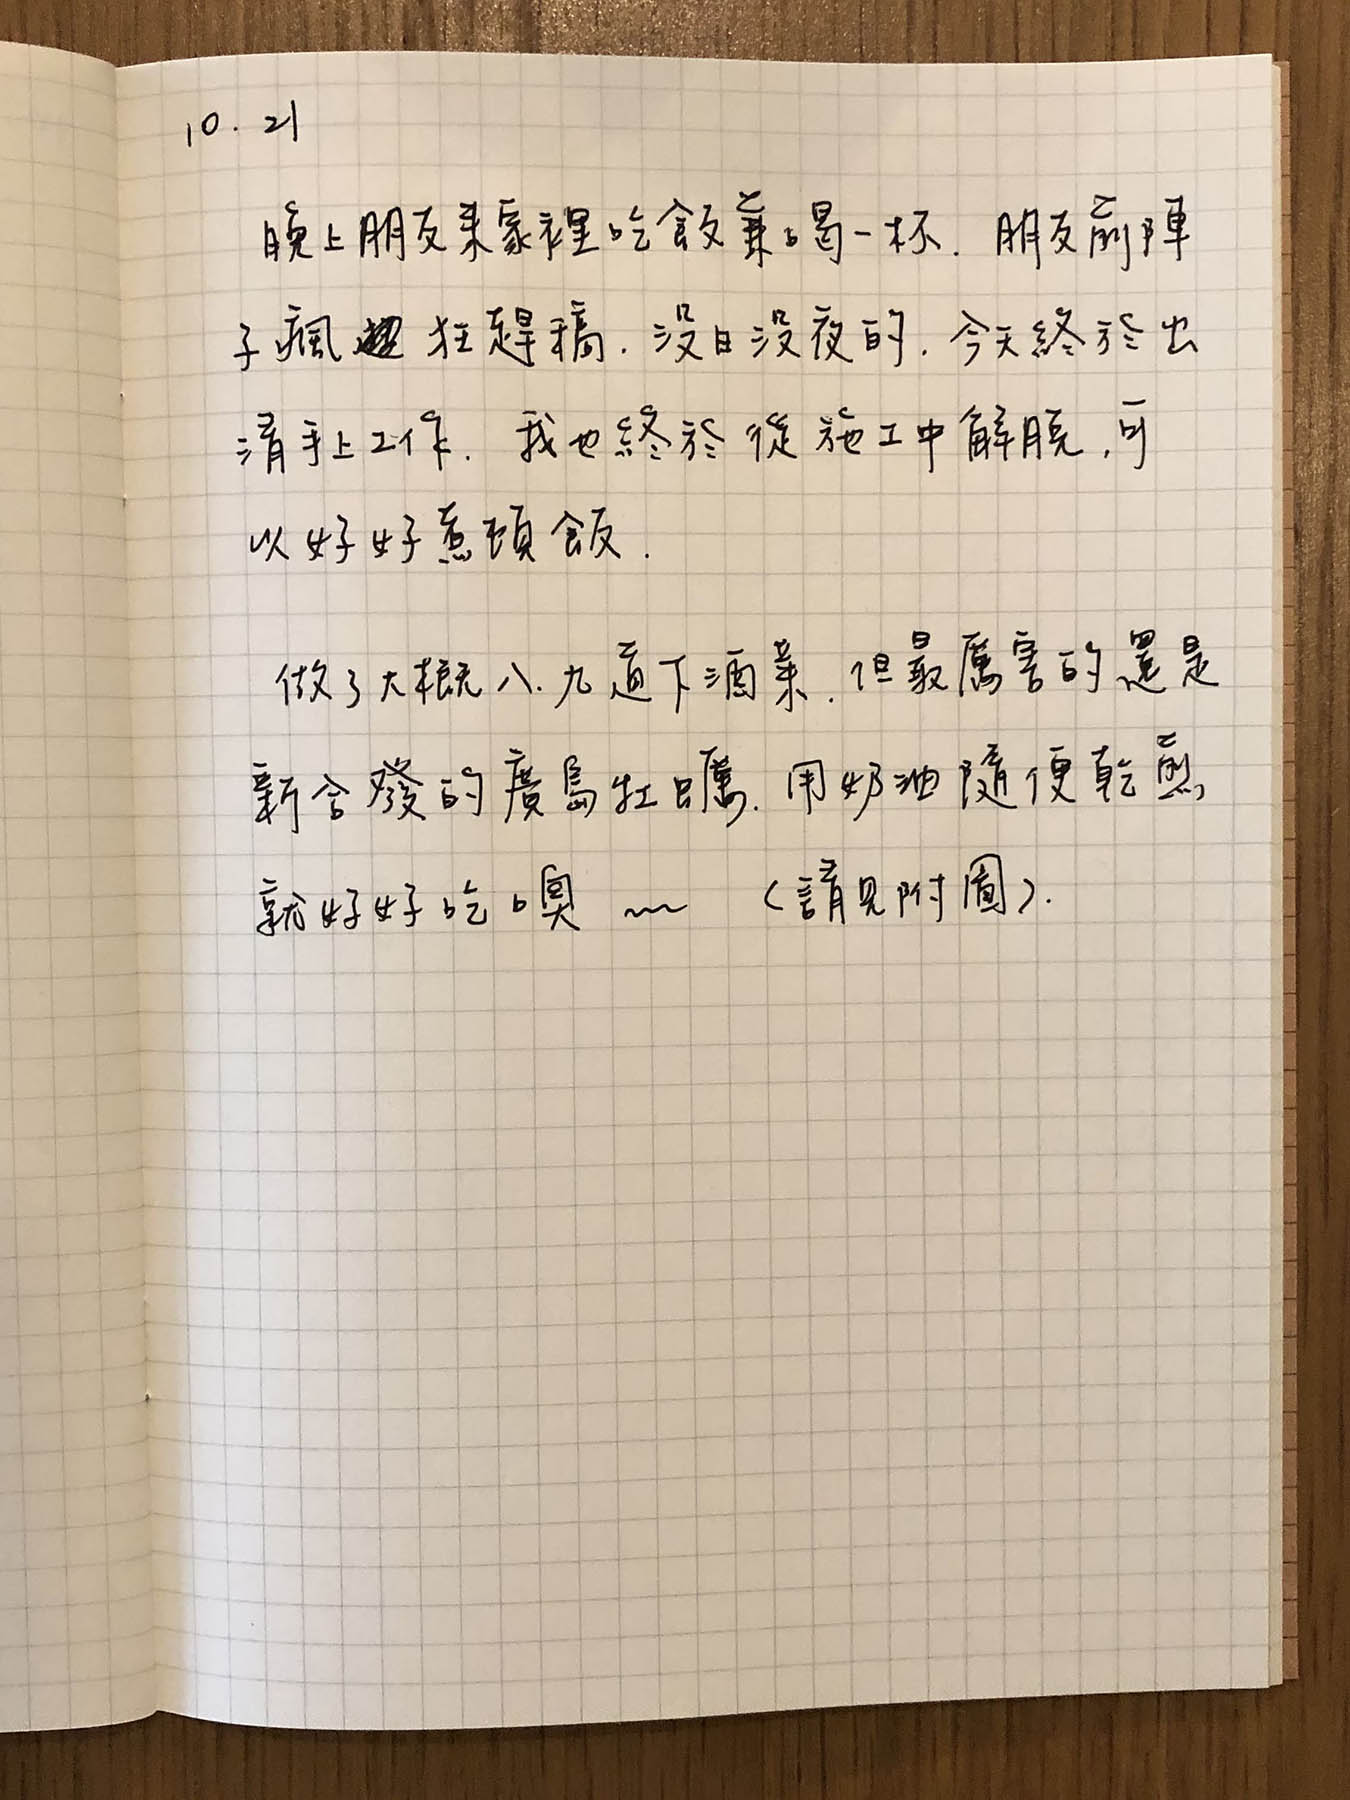 10.21
晚上朋友來家裡吃飯兼喝一杯.朋友前陣
子瘋狂趕稿.沒日沒夜的.今天終於出
清手上工作.我也終於從施工中解脫,可
以好好煮頓飯.
做了大概八.九道下酒菜.但最厲害的還是
新合發的廣島牡蠣.用奶油隨便乾煎
就好好吃噢~~(請見附圖).